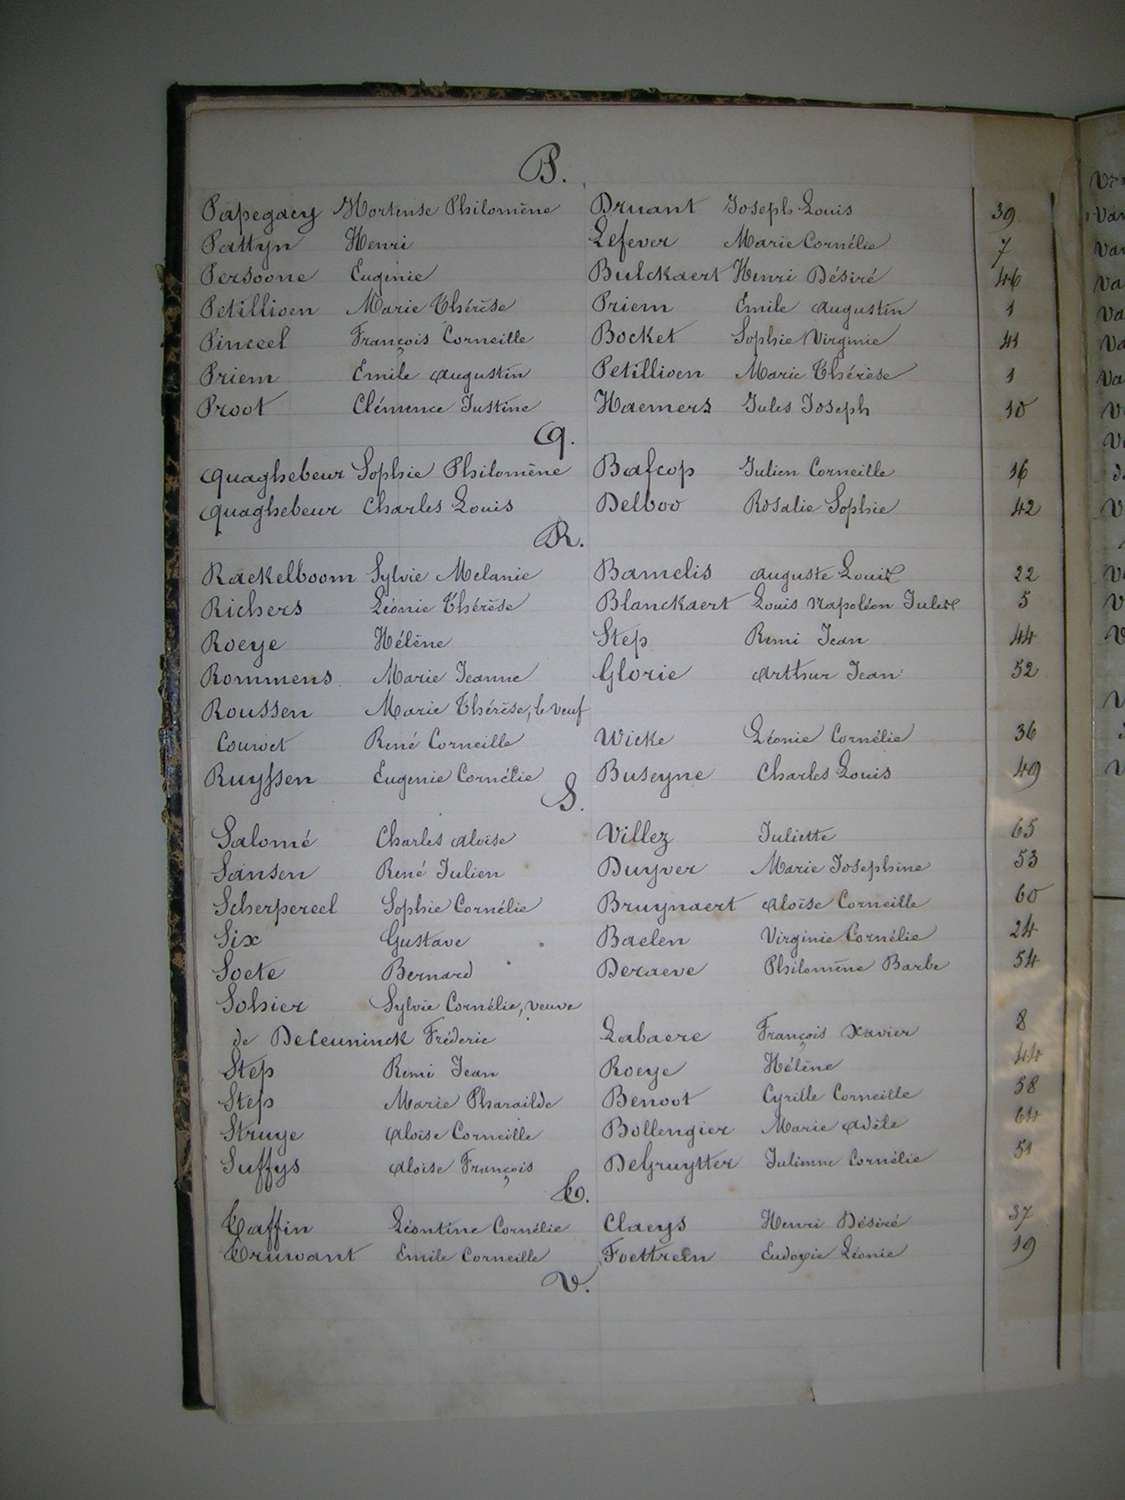 P.
Papegaey Hortense Philomène Druant Joseph Louis 39
Pattyn Henri Lefever Marie Cornélie 7
Persoone Eugénie Bulckaert Henri Désiré 46
Petillioen Marie Thérèse Priem Emile Augustin 1
Pinceel François Corneille Bocket Sophie Virginie 41
Priem Emile Augustin Petillioen Marie Thérèse 1
Proot Clémence Justine Haemers Jules Joseph 10
Q.
Quaghebeur Sophie Philomène Bafcop Julien Corneille 16
Quaghebeur Charles Louis Delboo Rosalie Sophie 42
R.
Raekelboom Sylvie Melanie Bamelis Auguste Louis 22
Richers Léonie Thérèse Blanckaert Louis Napoléon Jules 5
Roeye Hélène Step Remi Jean 44
Rommens Marie Jeanne Glorie Arthur Jean 52
Roussen Marie Thérèse, le veuf
Couvet René Corneille Wicke Léonie Cornélie 36
Ruyssen Eugenie Cornélie Buseyne Charles Louis 49
S.
Salomé Charles Aloïse Villez Juliette 65
Sansen René Julien Duyver Marie Josephine 53
Scherpereel Sophie Cornélie Bruynaert Aloïse Corneille 60
Six Gustave Baelen Virginie Cornélie 24
Soete Bernard Deraeve Philomène Barbe 54
Sohier Sylvie Cornélie, veuve
de Deceuninck Fréderic Labaere François Xavier 8
Step Remi Jean Roeye Hélène 44
Step Marie Pharaïlde Benoot Cyrille Corneille 58
Struye Aloïse Corneille Bollengier Marie Adèle 64
Suffys Aloïse François DeGruytter Julienne Cornélie 51
T.
Taffin Léontine Cornélie Claeys Henri Désiré 37
Truwant Emile Corneille Foettreln Eudoxie Léonie 19
V.